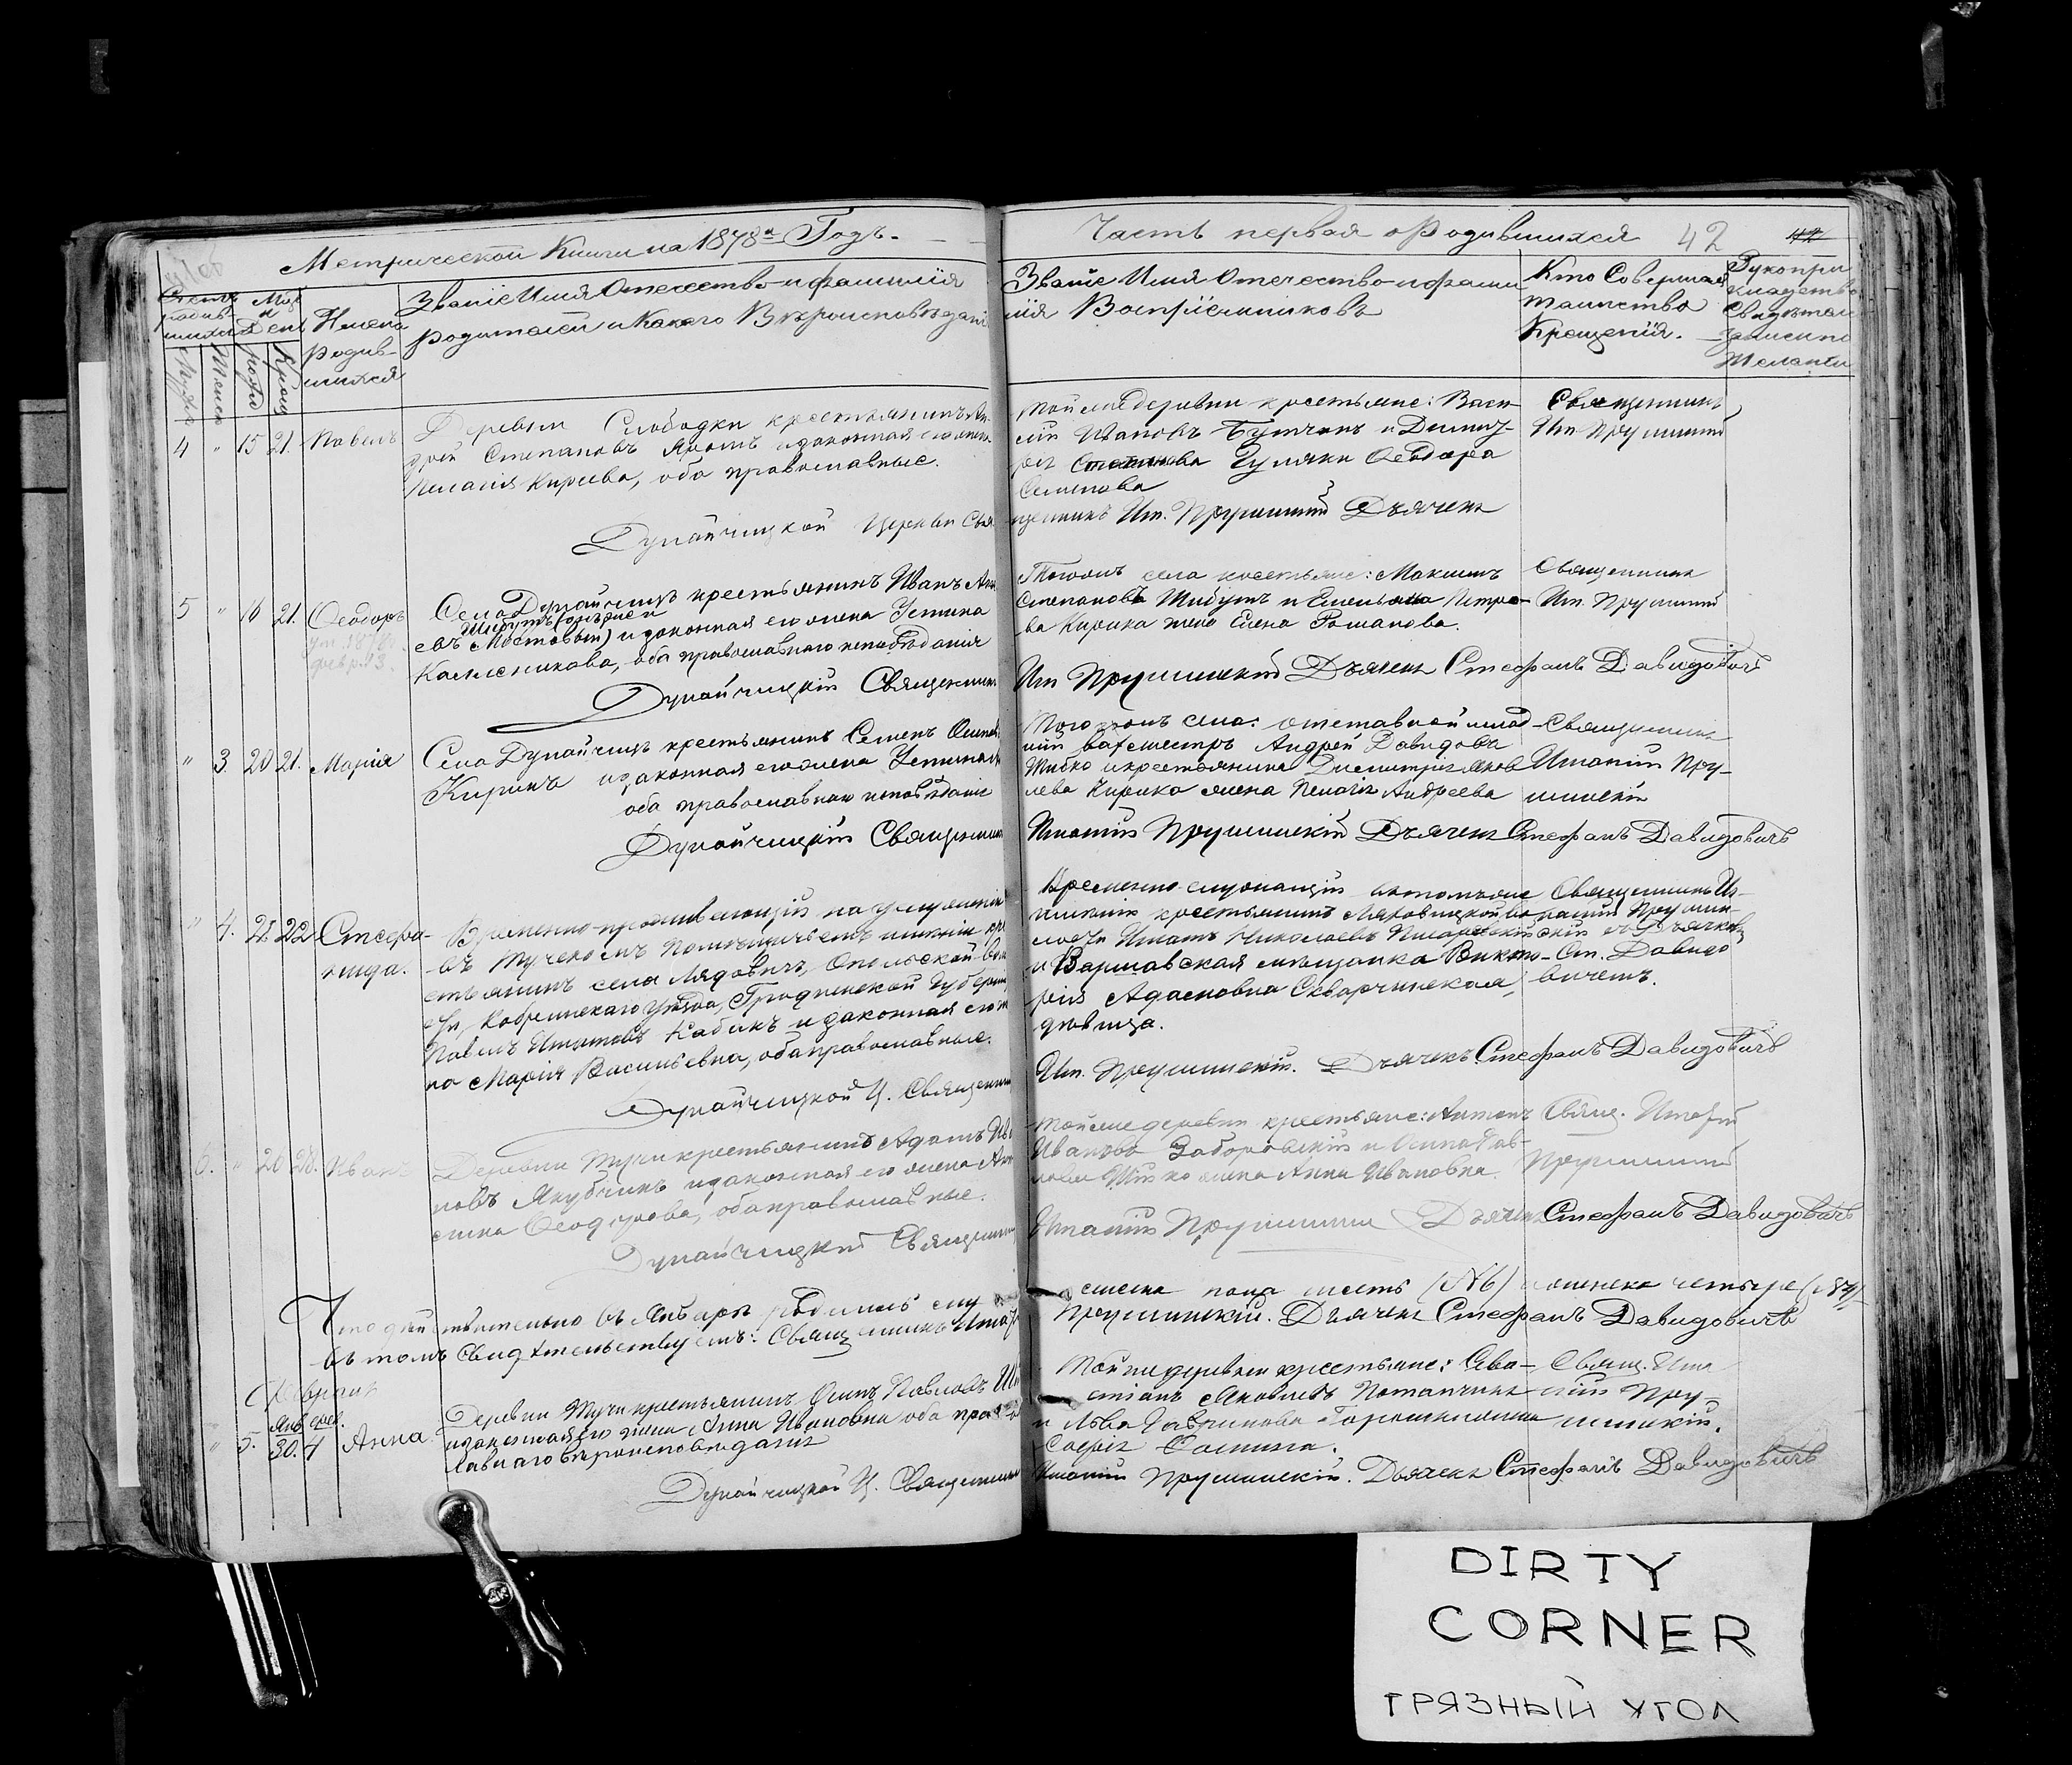 Метрической Книги на 1878й Годъ.
Часть первая о Родившихся 42
Счетъ родив-
шихся
Имена
Родив-
шихся
Званіе Имя Отечество и фамилія
Родителей и Какого Вѣроисповѣдані
Званіе Имя Отечество и фами
лія Воспріемниковъ
Кто Совершалъ
таинство
Крещенія.
Рукопри
кладство
Свидѣтел
записи по
желанію
4 " 15 21. Павелъ
Деревни Слободки крестьянинъ Ан
дрей Степановъ и законная его жена
Пелагія Кирѣева, оба православные.
Дунайчицкой Церкви Свя
Той же деревни крестьяне: Васи-
лій Ивановъ и Димит-
рія Степанова Гуляки Ѳеодора
Семенова
щенникъ Игн. Прушинскій Дьячекъ
Священникъ
Игн. Прушинскій
5 " 16 21. Ѳеодоръ
ум. 187
февр. 13.
Село Дунайчицъ крестьянинъ Иванъ
евъ Мостовый) и законная его жена Устина
Колесникова, оба православнаго исповѣданія
Дунайчицкій Священник
Тогожъ села крестьяне: Максимъ
Степановъ Шибутъ и Емельяна Петро-
ва Кирика жена Елена Романова.
Игн Прушинскій Дьячекъ Стефанъ Давидовичъ
Священникъ
Игн. Прушинскій
" 3. 20 21. Марія
Села Дунайчицъ крестьянинъ Семенъ
Кирикъ и законная его жена Устинія
оба православнаго исповѣданіе
Дунайчицкій Священник
Того жъ села: отставной млад-
шій вахмистръ Андрей Давидовъ
Жибко и крестьянина Димитрія Яков
лева Кирика жена Пелагія Андреева
Игнатій Прушинскій Дьячекъ Стефанъ Давидовичъ
Священникъ
Игнатій Пру-
шинскій
" 4. 21 22 Стефа-
нида.
Временно проживающій на служеніи
въ Тучекомъ имѣніи кре
стьянинъ села Лядовичъ, Опольской вол
сти, Кобринскаго Уѣзда, Гродненской Губерніи
Павелъ Игнатовъ Кабакъ и законная его же
на Марія Васильевна, оба православные.
Дунайчицкой Ц. Священник
Временно служащій въ томъ же
имѣніи крестьянинъ Ляховицкой во
лости Игнатъ Николаевъ
и Варшавская мѣщанка Викто-
рія Адамовна Скварчинская,
дѣвица.
Игн. Прушинскій. Дьячекъ Стефанъ Давидовичъ
Священникъ Иг-
натій Прушин-
скій съ Дьячкомъ
Ст. Давидо
вичемъ.
6. " 20 28. Иванъ
Деревни Тучи крестьянинъ Адамъ Ива
новъ Якубчикъ и законная его жена
Ѳеодорова, оба православные.
Дунайчицкій Священник
Той же деревни крестьяне: Антонъ
Ивановъ Заборовскій и Осипа Пав-
лова Шишко жена Анна Ивановна.
Игнатій Прушинскій Дьячекъ Стефанъ Давидовичъ
Свящ. Игнатій
Прушинскій
Что дѣйствительно въ Январѣ родилось
пола шесть (№6) а женска четыре (№4)
въ томъ свидѣтельствуемъ: Священникъ Игнатій
Прушинскій. Дьячекъ Стефанъ Давидовичъ
Февраль
Янв фев.
" 5. 30. 4 Анна.
Деревни Тучи крестьянинъ Осипъ Павловъ Ши
и законная его жена Анна Ивановна оба правос
лавнаго вѣроисповѣданія
Дунайчицкой Ц. Священник
Той же деревни крестьяне: Сева-
стіанъ Яковлевъ Потапчикъ
и Льва Гавриилова
Софія Фомина.
Игнатій Прушинскій. Дьячекъ Стефанъ Давидовичъ
Свящ. Игна
тій Пру-
шинскій.
DIRTY
CORNER
ГРЯЗНЫЙ УГОЛ